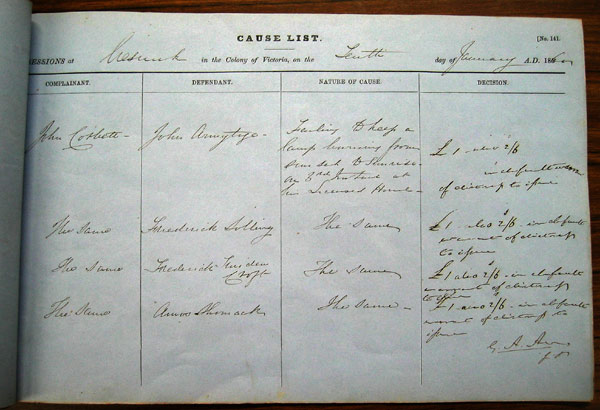 CAUSE LIST.
[No. 14].
ESSIONS at Creswick in the Colony of Victoria, on the Tenth day of January A.D. 186
COMPLAINANT.
DEFENDANT.
NATURE OF CAUSE.
DECISION.
John Corbett -
John Armytage -
Failing to keep a
lamp burning from
sunset to sunrise
on 3rd Instant at
his Licensed House -
£1 also 2/6
in default
of distress to issue
The same
Frederick
The same
£1 also 2/6 in default
warrant of distress
to issue
The same
Frederick
The same
£1 also 2/6 in default
warrant of distress
to issue
The same
Amos
The same -
£1 also 2/6 in default
warrant of distress to
issue